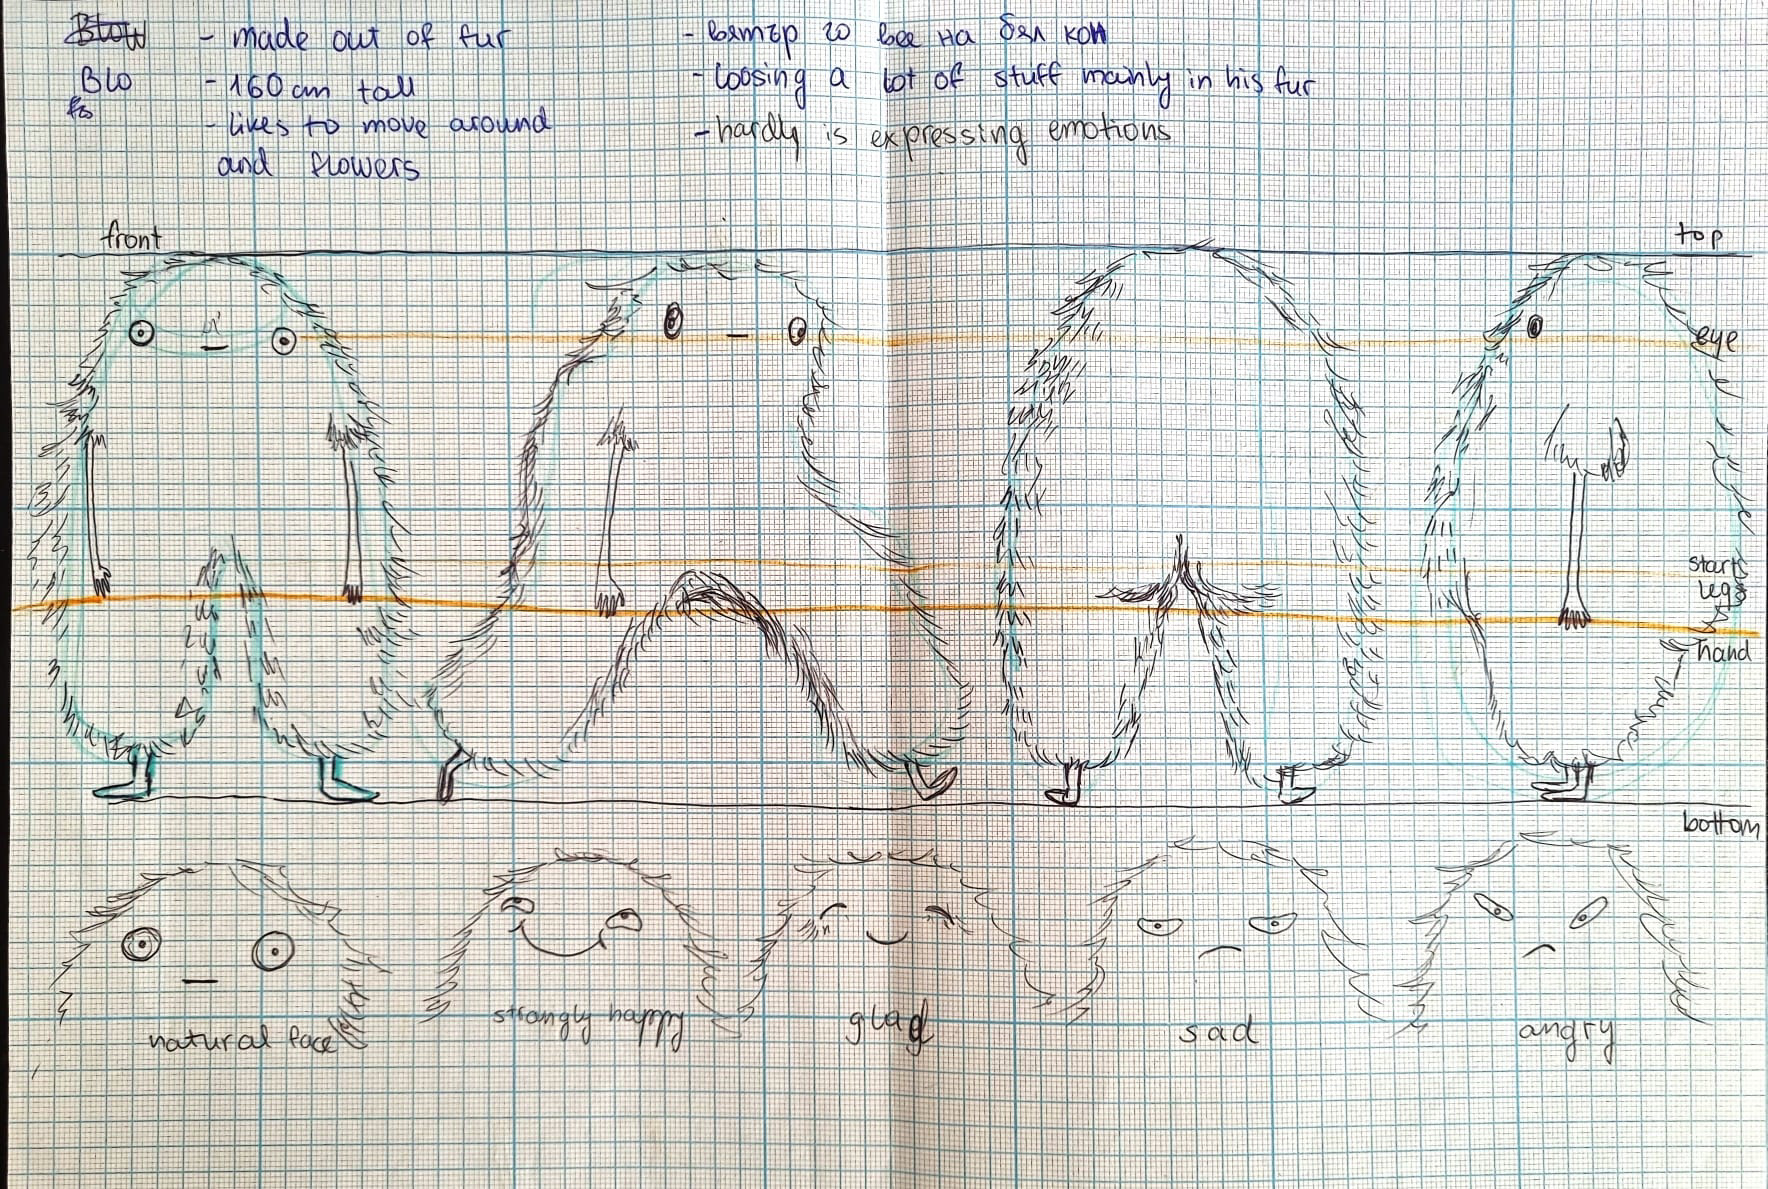 Blow - made out of fur - вятър го вее на бял кон
Blo - 160 cm tall - loosing a lot of stuff mainly in his fur
- likes to move around - hardly is expressing emotions
and flowers
front top
eye
start
legs
hand
bottom
natural face strongly happy glad sad angry